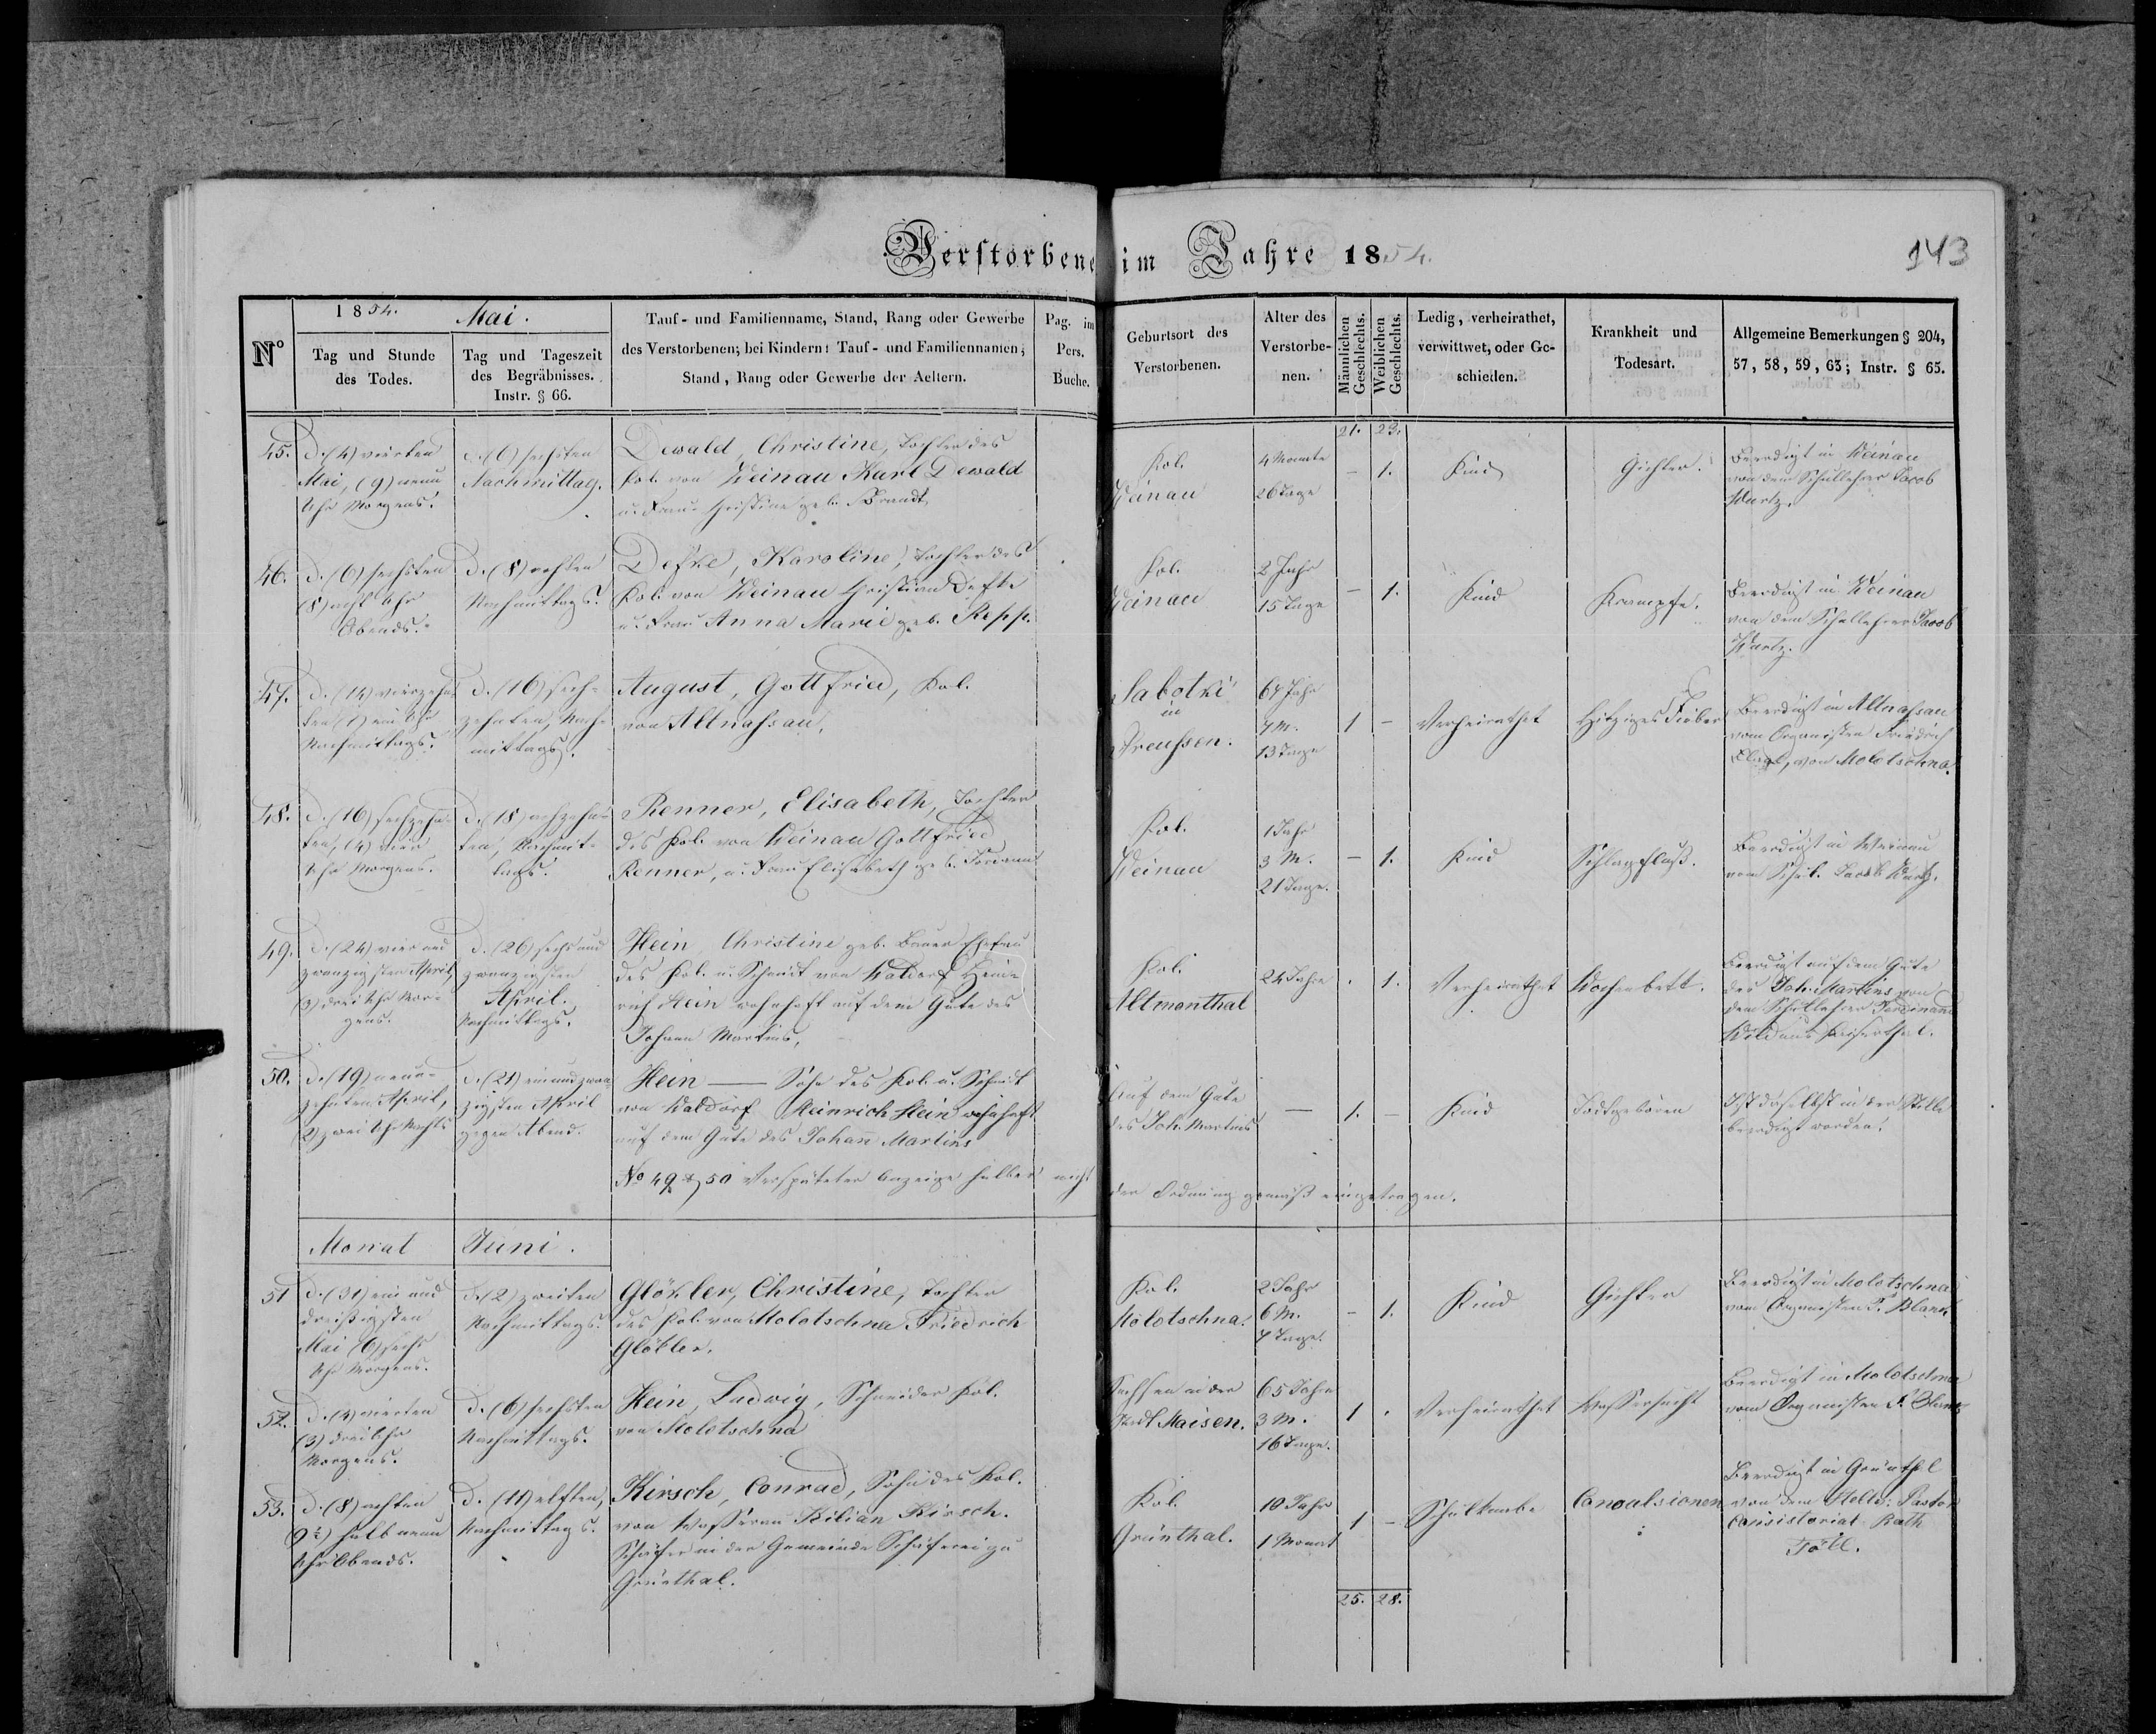 Verstorbene im Jahre 1854.
143
1854. Mai.
No
Tag und Stunde
des Todes.
Tag und Tageszeit
des Begräbnisses.
Instr. § 66.
Tauf- und Familienname, Stand, Rang oder Gewerbe
des Verstorbenen; bei Kindern: Tauf- und Familiennamen;
Stand, Rang oder Gewerbe der Aeltern.
Pag. im
Pers.
Buche.
Geburtsort des
Verstorbenen.
Alter des
Verstorbe-
nen.
Männlichen
Geschlechts.
Weiblichen
Geschlechts.
Ledig, verheirathet,
verwittwet, oder Ge-
schieden.
Krankheit und
Todesart.
Allgemeine Bemerkungen § 204,
57, 58, 59, 63; Instr. § 65.
21. 23.
45.
D. (4) vierten
Mai, (9) neun
Uhr Morgens.
d. (6) sechsten
Nachmittag.
Dewald, Christine, Tochter des
Kol. von Weinau Karl Dewald
u. Frau Christine geb. Brandt
Kol.
Weinau
4 Monate
26 Tage
– 1.
Kind
Gichter.
Beerdigt in Weinau
von dem Schullehrer Jacob
Wartz.
46.
D. (6) sechsten
(8) acht Uhr
Abends.
D. (8) achten
Nachmittags.
Defke, Karoline, Tochter des
Kol. von Weinau Christian Defke
u. Frau Anna Marie geb. Repp.
Kol.
Weinau
2 Jahr
15 Tage
– 1.
Kind
Krampfe.
Beerdigt in Weinau
von dem Schullehrer Jacob
Wartz.
47.
D. (14) vierzehn-
ten (1) ein Uhr
Nachmittags.
D. (16) sech-
zehnten, Nach-
mittags.
August, Gottfried, Kol.
von Altnassau.
Sabotki
in
Preussen.
64 Jahr
7 M.
13 Tage
1 –
Verheirathet
Hitziges Fieber
Beerdigt in Altnassau
vom Organisten Friedrich
von Molotschna.
48.
D. (16) sechzehn-
ten, (4) vier
Uhr Morgens.
D. (18) achzehn-
ten, Nachmit-
tags.
Renner, Elisabeth, Tochter
des Kol. von Weinau Gottfried
Renner, u. Frau Elisabeth geb.
Kol.
Weinau
1 Jahr
3 M.
21 Tage.
– 1.
Kind
Schlagfluß.
Beerdigt in Weinau
vom Schul. Jacob Wartz.
49.
D. (24) vier und
zwanzigsten April,
(3) drei Uhr Mor-
gens.
D. (26) sechs und
zwanzigsten
April.
Nachmittags.
Hein, Christine geb. Bauer Ehefrau
des Kol. u. Schmidt von Waldorf Hein-
rich Hein wohnhaft auf dem Gute des
Johann Martins.
Kol.
Altmonthal
24 Jahre
. 1.
Verheirathet
Wochenbett.
Beerdigt auf dem Gute
des Joh. Martins von
dem Schullehrer Ferdinand
Wild aus Kaiserthal.
50.
D. (19) neun-
zehnten April,
(2) zwei Uhr Nachts
d. (21) ein und zwan-
zigsten April
gegen Abend.
Hein — Sohn des Kol. u. Schmidt
von Waldorf Heinrich Hein wohnhaft
auf dem Gute des Johann Martins
Auf dem Gute
des Joh. Martins
—
1. –
Kind
Todtgeboren
Ist daselbst in der Stille
beerdigt worden.
No 49 & 50 Verspäteter Anzeige halber nicht der Ordnung gemäß eingetragen.
Monat Juni.
51
D. (31) ein und
dreißigsten
Mai (6) sechs
Uhr Morgens.
D. (2) zweiten
Nachmittags.
Glökler, Christine, Tochter
des Kol. von Molotschna Friedrich
Glökler.
Kol.
Molotschna.
2 Jahr
6 M.
7 Tage.
– 1.
Kind
Gichter
Beerdigt in Molotschna
vom Organisten F. Blank
52.
D. (4) vierten
(3) drei Uhr
Morgens.
D. (6) sechsten
Nachmittags.
Hein, Ludwig, Schneider Kol.
von Molotschna
Sachsen in der
Stadt Maisen.
65 Jahr
3 M.
16 Tage.
1 .
Verheirathet
Wassersucht
Beerdigt in Molotschna
vom Organisten F. Blank
53.
D. (8) achten
(9½) halb neun
Uhr Abends.
D. (11) elften,
Nachmittags.
Kirsch, Conrad, Sohn des Kol.
von Wasserau Kilian Kirsch.
Schäfer in der Gemeinde Schäferei zu
Grünthal.
Kol.
Grünthal.
10 Jahr
1 Monat
1 –
Schulknabe
Convulsionen
Beerdigt in Grünthal
von dem Stellv. Pastor
Consistorial Rath
Föll.
25. 28.